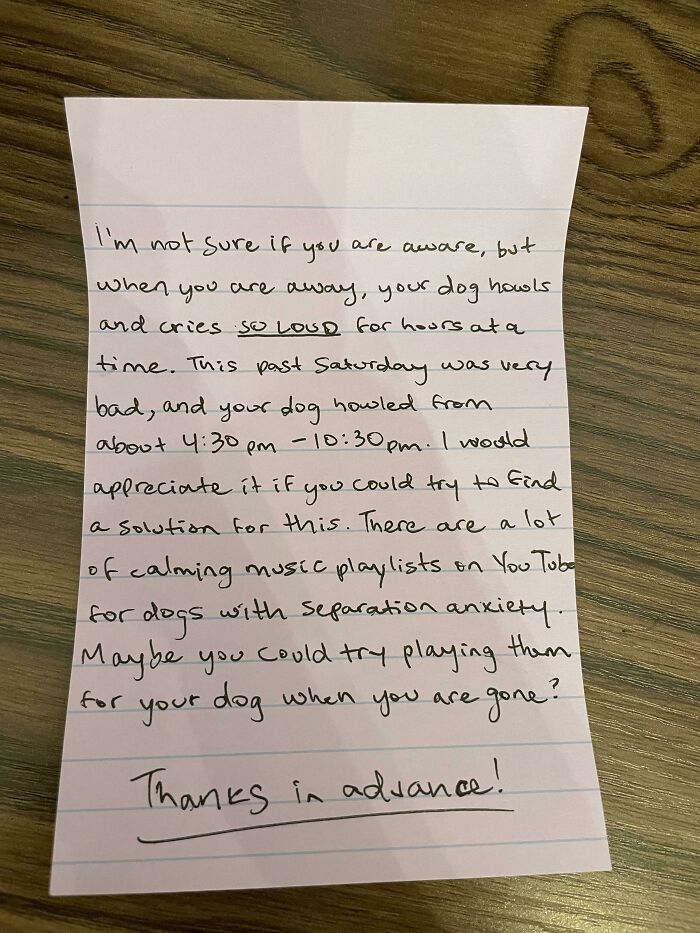 I'm not sure if you are aware, but
when you are away, your dog howls
and cries SO LOUD for hours at a
time. This past Saturday was very
bad, and your dog howled from
about 4:30 pm - 10:30 pm. I would
appreciate it if you could try to find
a solution for this. There are a lot
of calming music playlists on YouTube
for dogs with separation anxiety.
Maybe you could try playing them
for your dog when you are gone?
Thanks in advance!